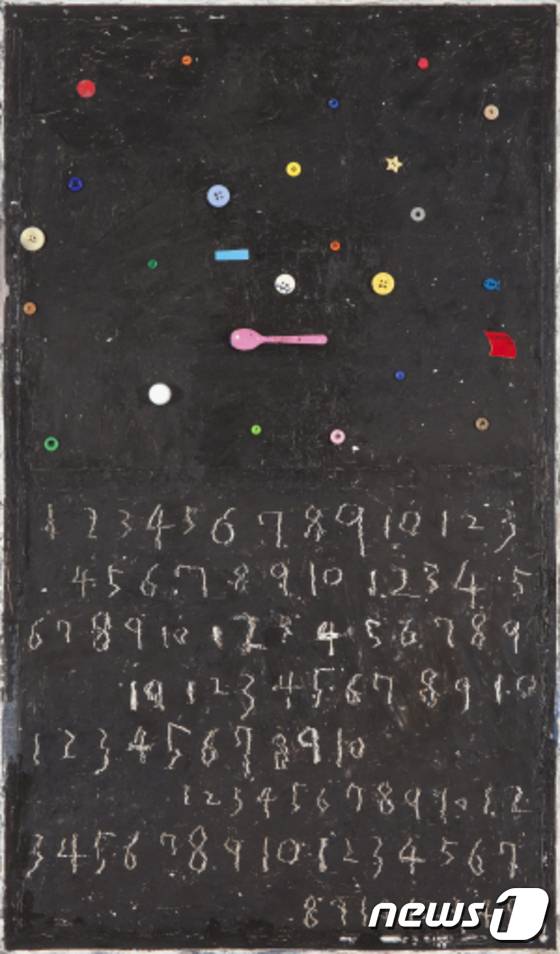 1 2 3 4 5 6 7 8 9 10 1 2 3
4 5 6 7 8 9 10 1 2 3 4 5
6 7 8 9 10 1 2 3 4 5 6 7 8 9
10 1 2 3 4 5 6 7 8 9 10
1 2 3 4 5 6 7 8 9 10
1 2 3 4 5 6 7 8 9 10 1 2
3 4 5 6 7 8 9 10 1 2 3 4 5 6 7
8 9
news1